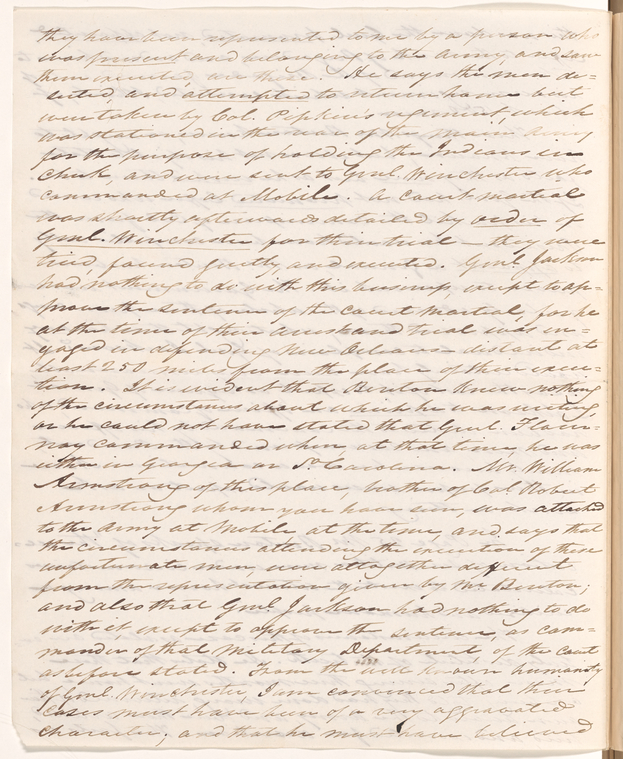 they have been represented to me by a person who
was present and belonging to the Army, and saw
them executed, are these. He says the men de=
serted, and attempted to return home but
were taken by Col. Pipkin's regiment, which
was stationed in the rear of the main Army
for the purpose of holding the Indians in
Check, and were sent to Genl. Winchester who
commanded at Mobile. A court martial
was shortly afterwards detailed by order of
Genl. Winchester for their trial – they were
tried, found guilty, and executed. Genl. Jackson
had nothing to do with this business, except to ap=
prove the sentence of the court Martial, for he
at the time of their arrest and trial was en=
gaged in defending New Orleans distant at
least 250 miles from the place of their execu=
tion. It is evident that Benton knew nothing
of the circumstances about which he was writing,
or he could not have stated that Genl. Flour=
noy commanded when, at that time, he was
either in Georgia or So. Carolina. Mr. William
Armstrong of this place, brother of Col Robert
Armstrong whom you have seen, was attached
to the Army at Mobile at the time, and says that
the circumstances attending the execution of these
unfortunate men, were altogether different
from the representation given by Mr Benton;
and also that Genl. Jackson had nothing to do
with it, except to approve the sentence, as com=
mander of that Military Department, of the Court
as before stated. From the well known humanity
of Genl. Winchester, I am convinced that their
cases must have been of a very aggravated
character, and that he must have believed